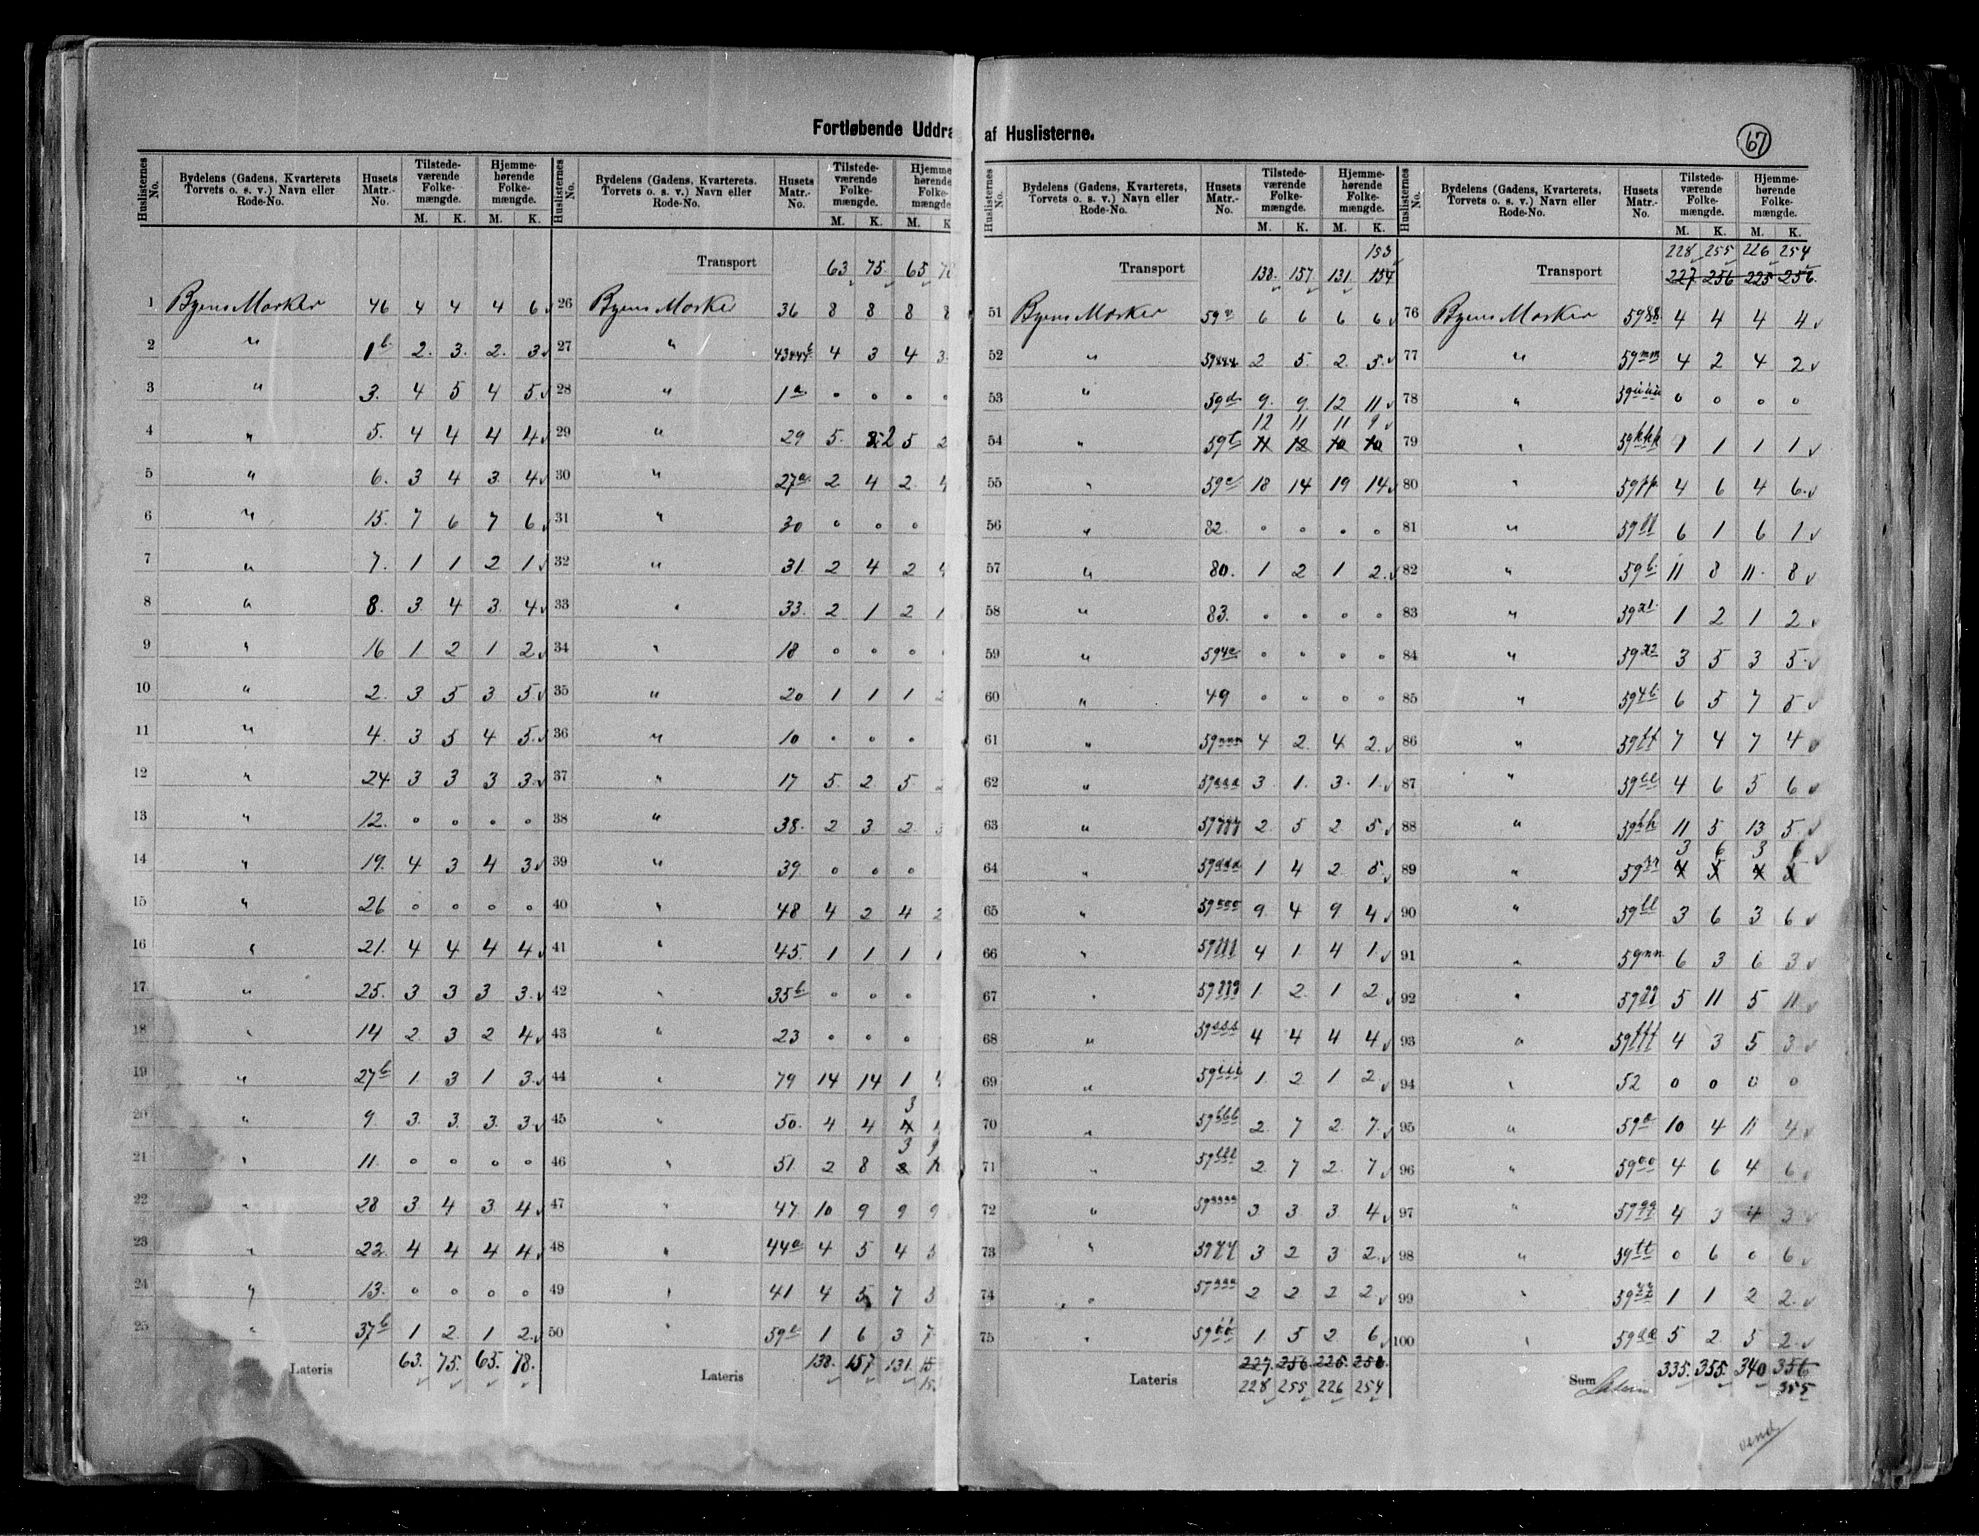 Fortløbende Uddra af Huslisterne.
67
Huslisternes No. | Bydelens (Gadens, Kvarterets Torvets o. s. v.) Navn eller Rode-No. | Husets Matr.-No. | Tilstede-værende Folke-mængde. M. K. | Hjemme-hørende Folke-mængde. M. K.
1 Byens Marker 46 4 4 4 6
2 " 1b 2. 3. 2. 3
3 " 3. 4 5 4 5
4 " 5. 4 4 4 4
5 " 6. 3 4 3 4
6 " 15. 7 6 7 6
7 " 7. 1 1 2 1
8 " 8. 3 4 3 4
9 " 16 1 2 1 2
10 " 2. 3 5 3 5
11 " 4. 3 5 4 5
12 " 24 3 3 3 3
13 " 12. 0 0 0 0
14 " 19. 4 3 4 3
15 " 26 0 0 0 0
16 " 21. 4 4 4 4
17 " 25. 3 3 3 3
18 " 14 2 3 2 4
19 " 27b 1 3 1 3
20 " 9. 3 3 3 3
21 " 11. 0 0 0 0
22 " 28 3 4 3 4
23 " 22. 4 4 4 4
24 " 13. 0 0 0 0
25 " 37b 1 2 1 2
Lateris 63. 75. 65. 78.
Huslisternes No. | Bydelens (Gadens, Kvarterets, Torvets o. s. v.) Navn eller Rode-No. | Husets Matr.-No. | Tilstede-værende Folke-mængde. M. K. | Hjemme hørende Folke-mængde M. K
Transport 63 75. 65
26 Byens Marker 36 8 8 8 8
27 " 4 3 4 3
28 " 1a 0 0 0 0
29 " 29 5. 2 5 2
30 " 27a 2 4 2 4
31 " 30 0 0 0
32 " 31. 2 4 2 4
33 " 33. 2 1 2 1
34 " 18 0 0 0 0
35 " 20 1 1 1 2
36 " 10 0 0 0
37 " 17 5. 2 5
38 " 38. 2 3 2 3
39 " 39 0 0 0
40 " 48 4 2 4 2
41 " 45. 1 1 1 1
42 " 35b 0 0 0
43 " 23 0 0 0
44 " 79 14 14 1 4
3
45 " 50. 4 4 4 4
3 9
46 " 51. 2 8
47 " 47. 10 9 9 9
48 " 44a 4 5 4 5
49 " 41 4 5 7 5
50 " 1 6 3 7
Lateris 138. 157 131.
Huslisternes No. | Bydelens (Gadens, Kvarterets, Torvets o. s. v.) Navn eller Rode-No. | Husets Matr.-No. | Tilstede-værende Folke-mængde. M. K. | Hjemme-hørende Folke-mængde. M. K.
153
Transport 138. 157 131. 154
51 Byens Marker 6 6 6 6
52 " 2 5. 2. 5
53 " 59d 9. 9. 12 11
12 11 11 9
54 " 11 12 10 10
55 " 18 14 19 14
56 " 82. 0 0 0 0
57 " 80. 1 2 1 2
58 " 83. 0 0 0 0
59 " 0 0 0 0
60 " 49 0 0 0 0
61 " 59nnn 4 2 4 2
62 " 59aaa 3 1. 3. 1
63 " 2 5 2 5
64 " 1 4 2 5
65 " 59ooo 9. 4 9 4
66 " 4 1 4 1
67 " 1. 2 1 2
68 " 59sss 4 4 4 4
69 " 59iii 1. 2 1 2
70 " 59bbb 2 7 2 7
71 " 59lll 2. 7 2. 7
72 " 3 3 3 4
73 " 3 2 3 2
74 " 2 2 2 2
75 " 1. 5 2 6
Lateris 227. 256. 225. 256.
228 255 226 254
Huslisternes No. | Bydelens (Gadens, Kvarterets, Torvets o. s. v.) Navn eller Rode-No. | Husets Matr.-No. | Tilstede-værende Folke-mængde. M. K. | Hjemme-hørende Folke-mængde. M. K.
228 255 226 254
Transport 227 256 225 256.
76 Byens Marker 4 4 4 4
77 " 59mm 4 2 4 2
78 " 0 0 0 0
79 " 59kkk 1 1 1 1
80 " 59pp 4 6 4 6
81 " 6 1 6 1
82 " 59b 11 8 11 8
83 " 59x1 1 2 1 2
84 " 59x2 3 5 3 5
85 " 6 5 7 5
86 " 7 4 7 4
87 " 4 6 5 6
88 " 59hh 11 5 13 5
3 6 3 6
89 " 4 5 4 5
90 " 59ll 3 6 3 6
91 " 59nn 6 3 6 3
92 " 5 11 5 11
93 " 4 3 5 3
94 " 52 0 0 0 0
95 " 10 4 11 4
96 " 59oo 4 6 4 6
97 " 4 3 4 3
98 " 59tt 0 6 0 6
99 " 1 1 2 2
100 " 59aa 5 2 5 2
Sum Lateris 335. 355. 340 356
355
vend